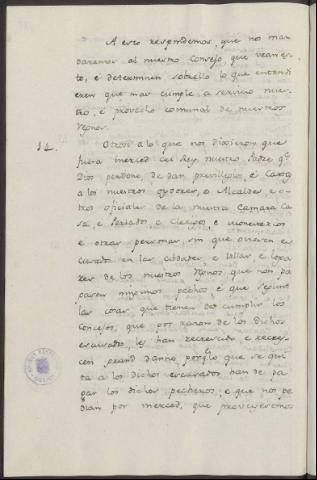 A esto respondemos, que nos man
daremos al nuestro Consejo, que vean es
to, è determinen sobrello lo que entendi
eren que mas cumple a servicio nues
tro, è provecho comunal de nuestros
Regnos.
14. Otrosi a lo que nos dixieron que
fuera merced del Rey nuestro Padre q.e
Dios perdone, de dar previllegios, è Cartas
a los nuestros oydores, e Alcaldes, e o
tros oficiales de la nuestra Camara Ca
sa, e Perlados e Clerigos e monederos
e otras personas, sin que oviesen es
cusados en las cibdades, e Villas, e loga
res de los nuestros Regnos, que non pa
gasen ningunos pechos è que segunt
las cosas que tienen de cumplir los
Concejos, que por razon de los dichos
escusados, les han recrescido e recres
cen grand danno, porq.e lo que se qui
ta a los dichos escusados han de pa
gar los dichos pecheros, e que nos pe
dian por merced, que proveyeremos